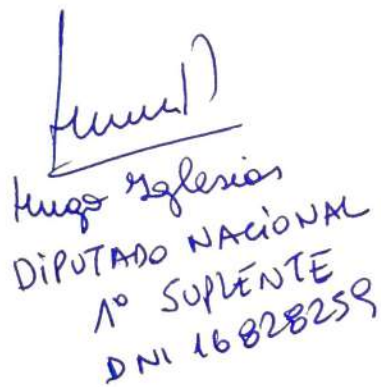 Hugo Iglesias
DiPUTADO NACiONAL
1º SUPLENTE
DNI 16828259